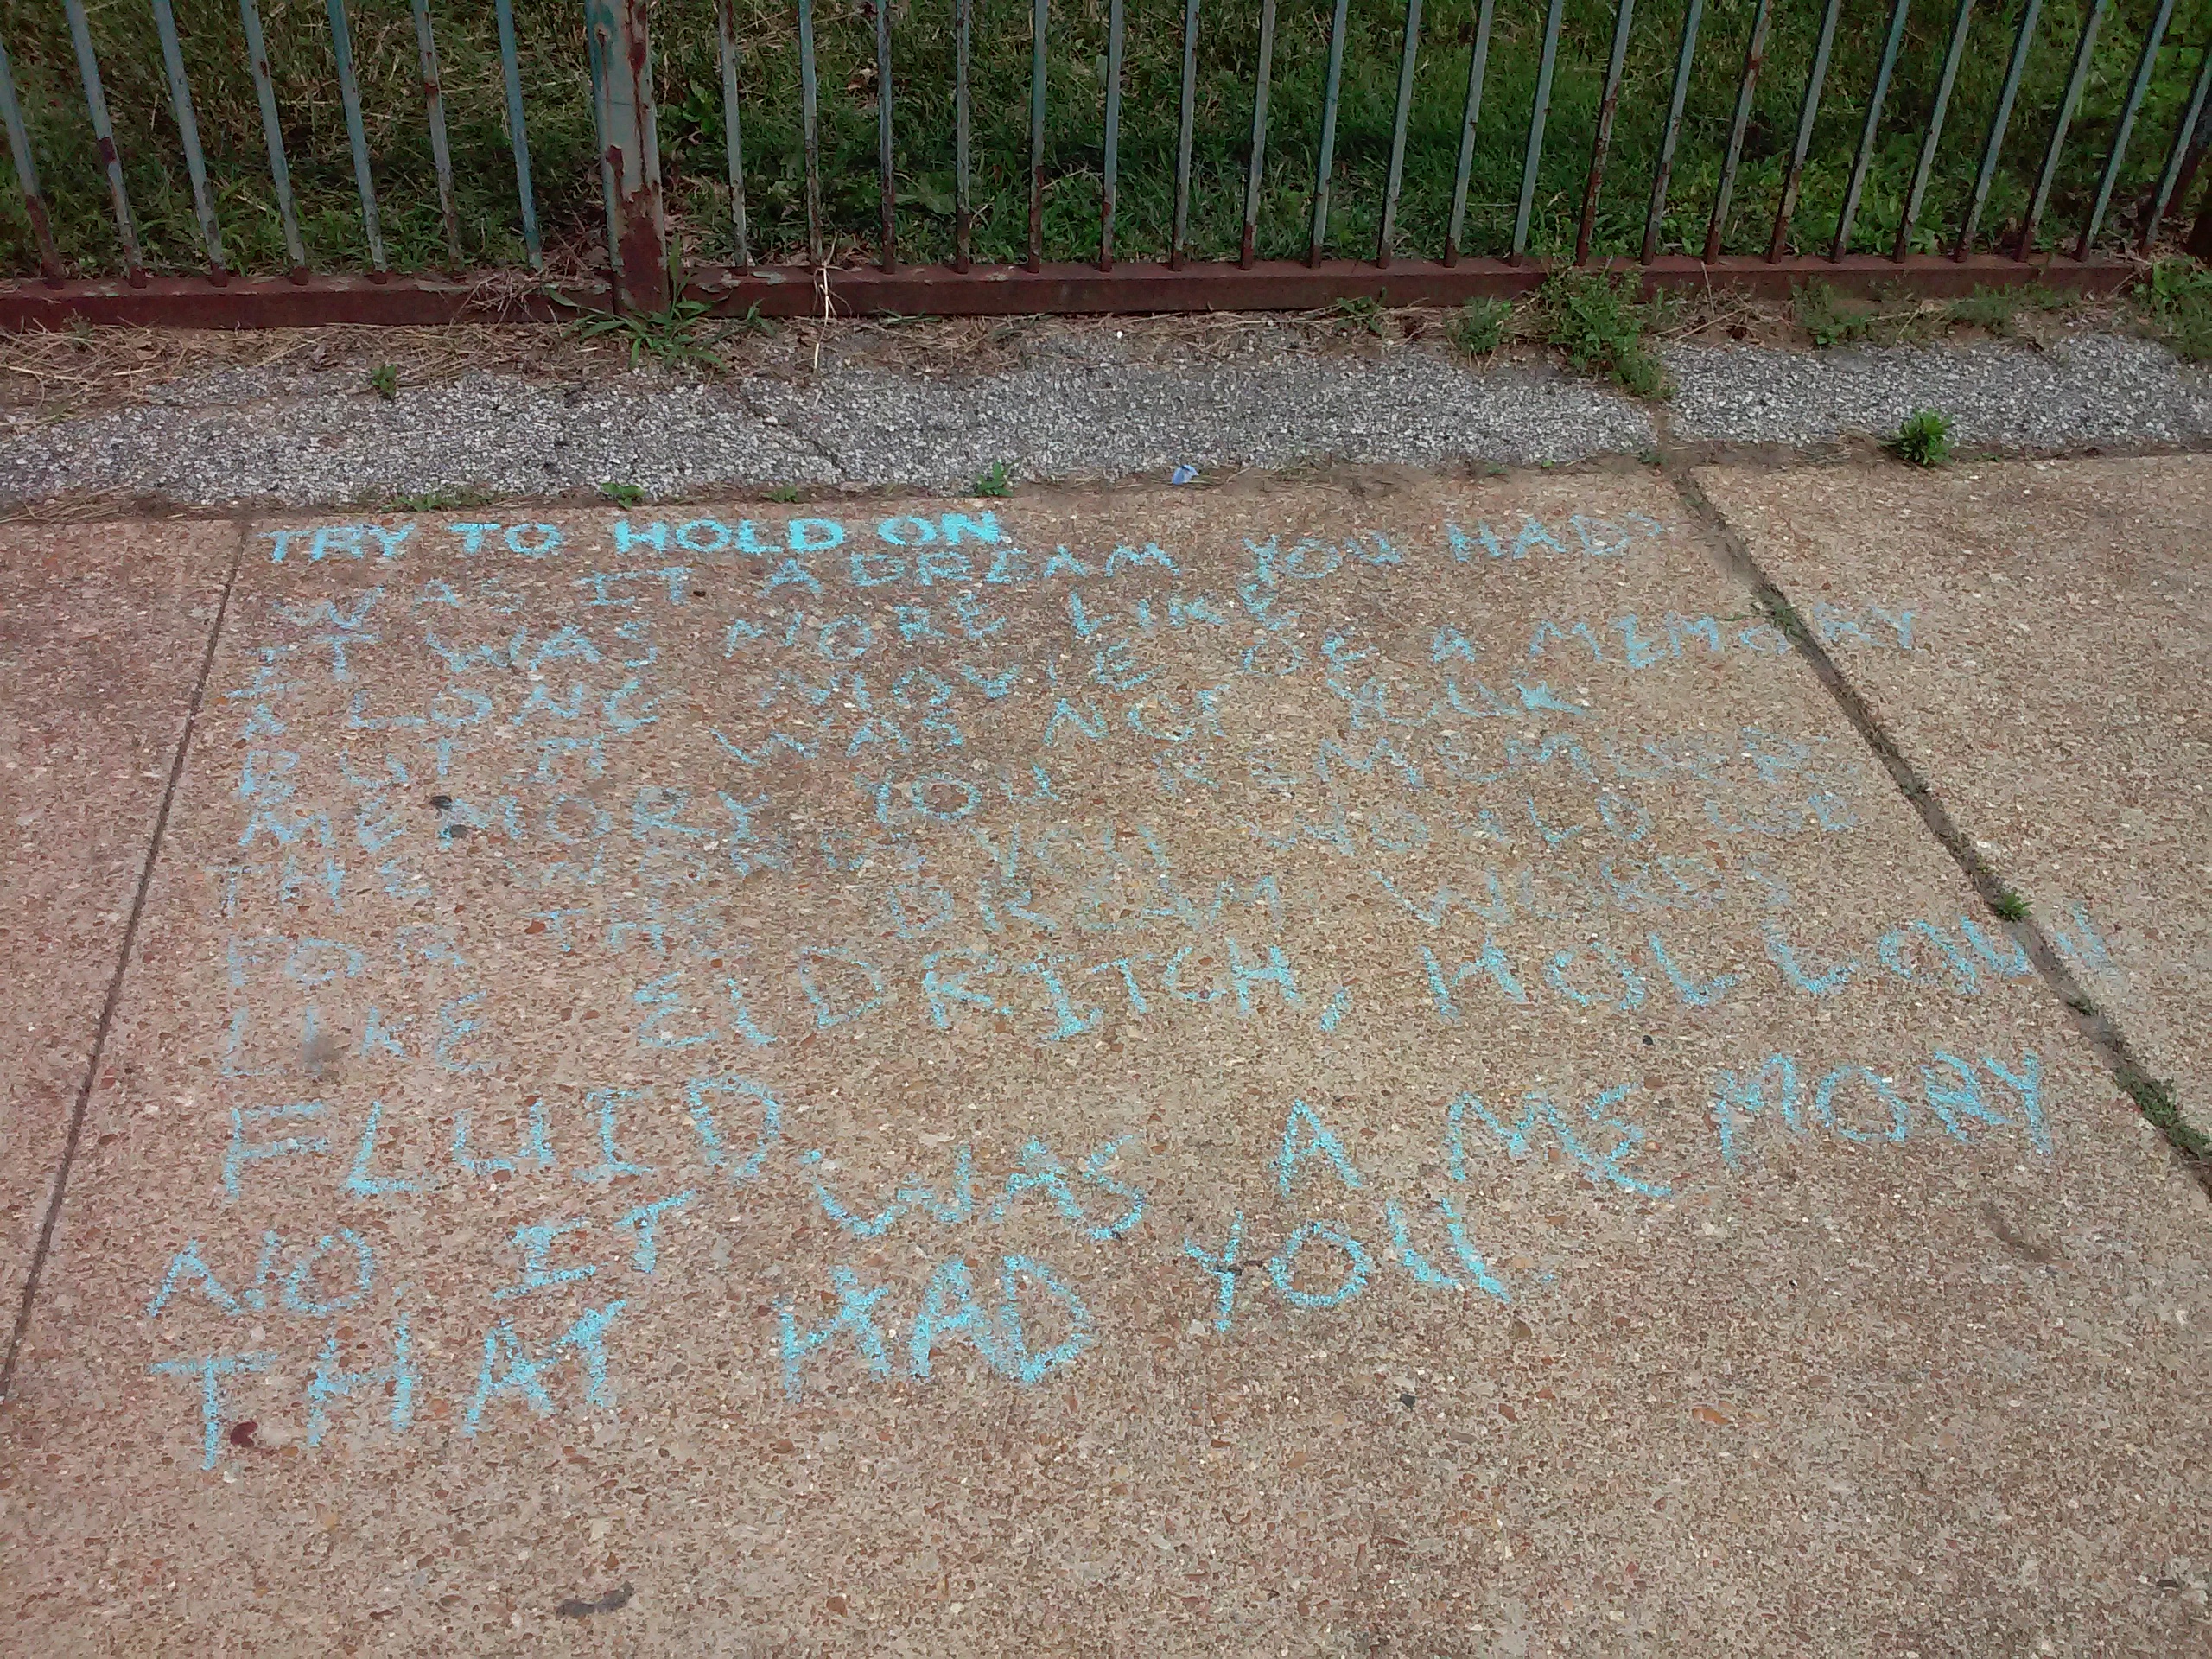 TRY TO HOLD ON
WAS IT A DREAM YOU HAD?
IT WAS MORE LIKE
A LONG MOVIE OF A MEMORY
BUT IT WAS NOT
MEMORY YOU REMEMBER
THE WORLD
FOR THE DREAM
LIKE ELDRITCH, HOLLOW
FLUID.
NO, IT WAS A MEMORY
THAT HAD YOU